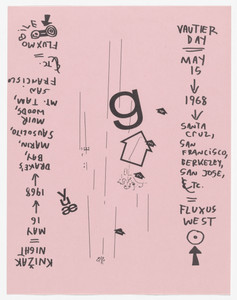 VAUTIER
DAY
=
MAY
15
1968
SANTA
CRUZ,
SAN
FRANCISCO,
BERKELEY,
SAN JOSE,
ETC.
=
FLUXUS
WEST
g
KNIŽAK
NIGHT
=
MAY
16
1968
DRAKE'S
BAY,
MARIN,
MUIR
WOODS,
MT. TAM,
SAN
FRANCISCO
ETC.
=
FLUXMO